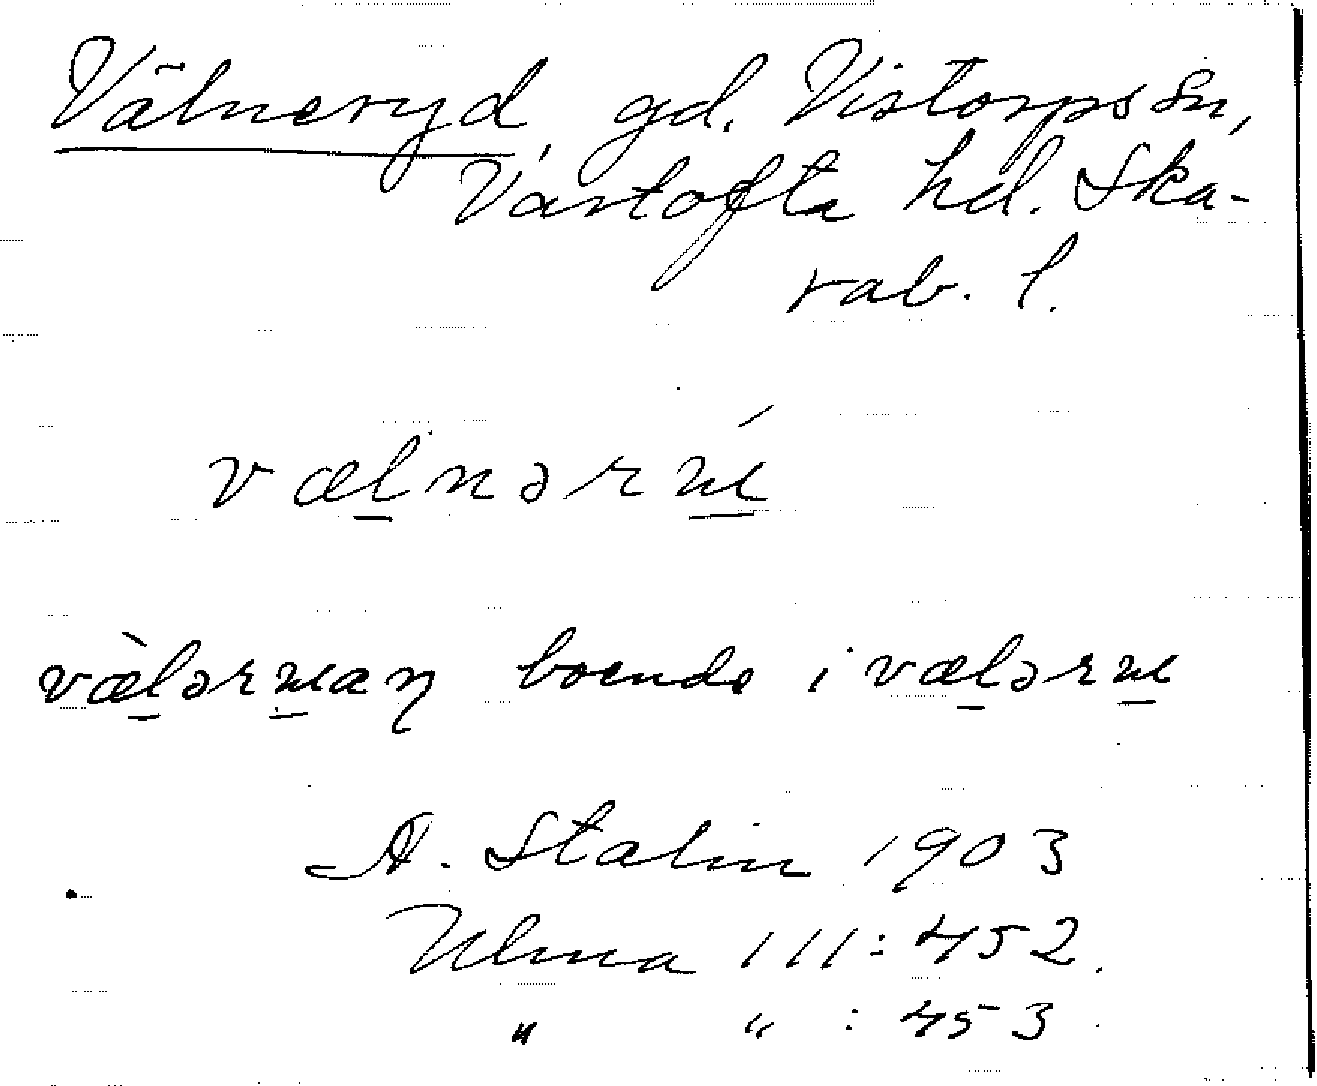 Vålneryd, gd. Vistorps sn,
Vartofta hd. Ska-
rab. l.
vælnərɯ́
væ̀lərɯaŋ boende i vælərɯ
A. Stalin 1903
Ulma 111:452.
" " : 453